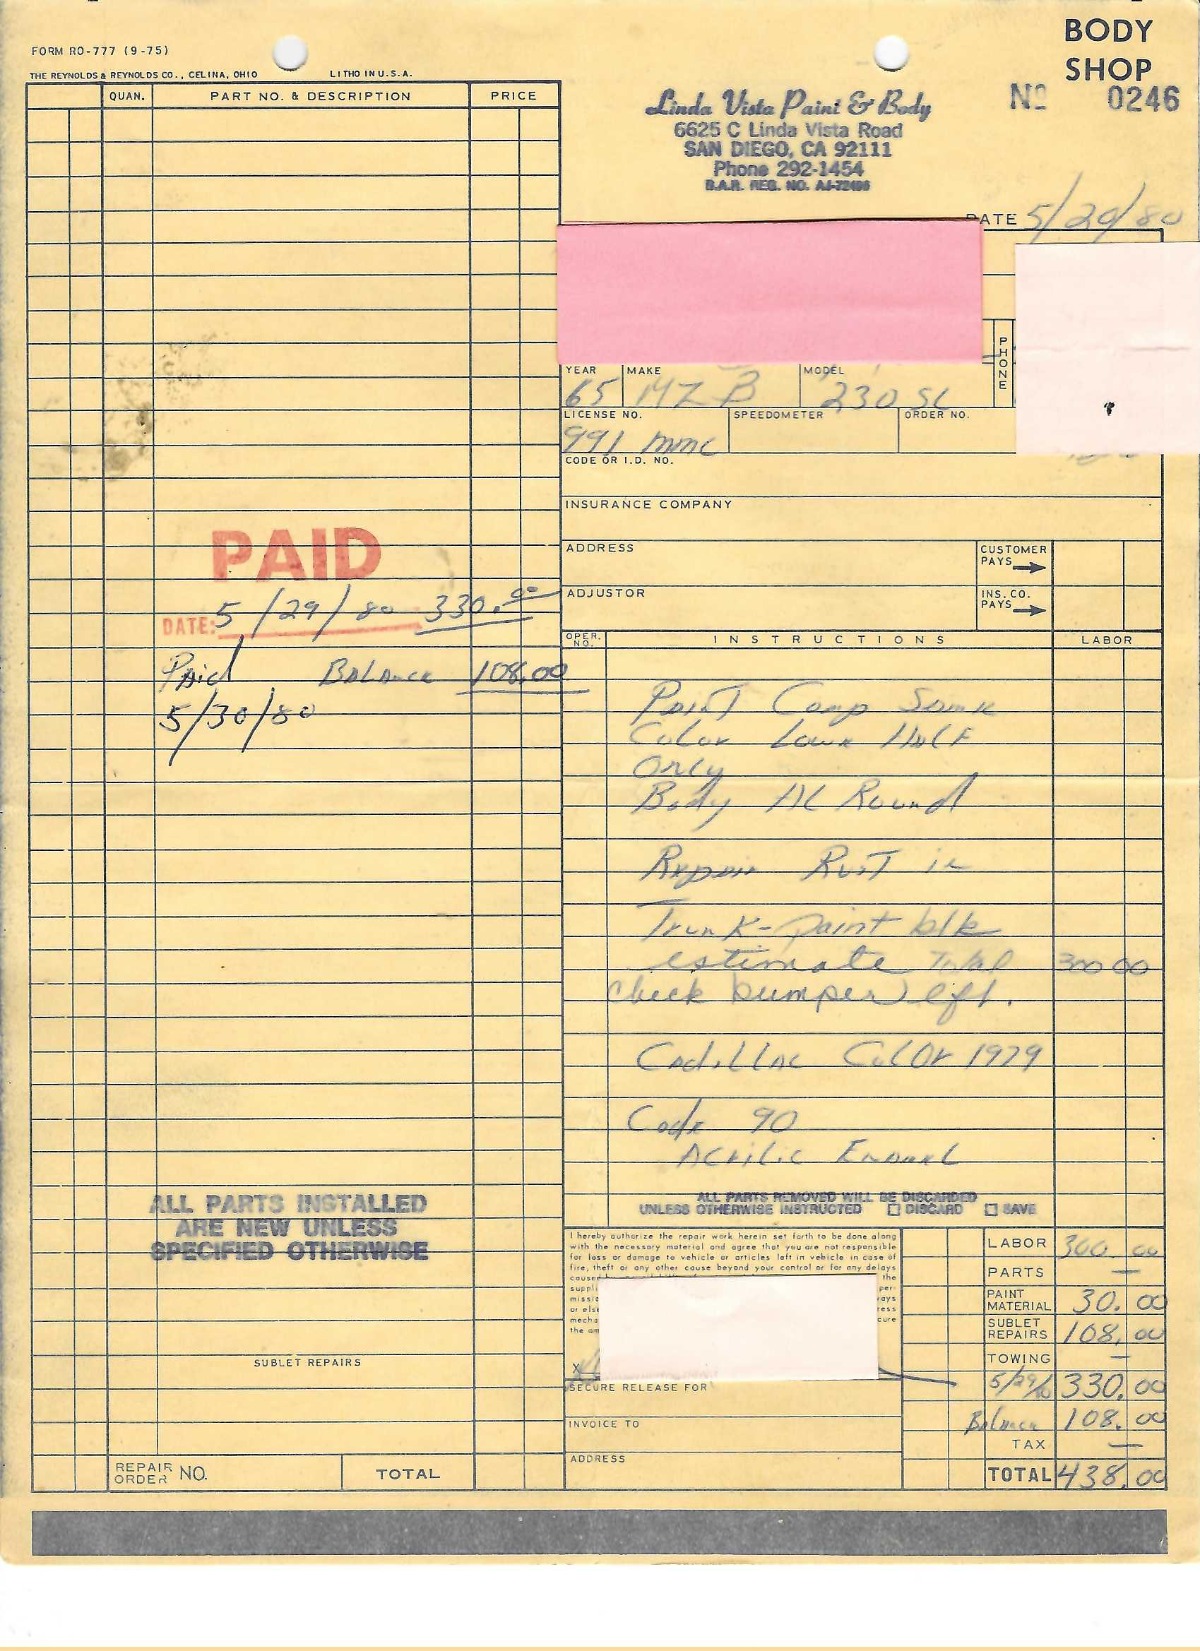 FORM RO-777 (9-75)
THE REYNOLDS & REYNOLDS CO., CELINA, OHIO LITHO IN U.S.A.
BODY
SHOP
No 0246
Linda Vista Paint & Body
6625 C Linda Vista Road
SAN DIEGO, CA 92111
Phone 292-1454
B.A.R. REG. NO.
QUAN. PART NO. & DESCRIPTION PRICE
DATE 5/29/80
PHONE
YEAR MAKE MODEL
65 MZ B 230 SL
LICENSE NO. SPEEDOMETER ORDER NO.
991 mmc
CODE OR I.D. NO.
INSURANCE COMPANY
ADDRESS CUSTOMER PAYS
ADJUSTOR INS. CO. PAYS
PAID
DATE: 5/29/80 330.00
Paid Balance 108.00
5/30/80
OPER. NO. INSTRUCTIONS LABOR
Paint Comp Same
Color Lowr Half
Only
Body Al Round
Repair Rust in
Trunk - paint blk
estimate Total 300 00
check bumper left.
Cadillac Color 1979
Code 90
Acrilic Enamel
ALL PARTS REMOVED WILL BE DISCARDED
UNLESS OTHERWISE INSTRUCTED DISCARD SAVE
ALL PARTS INSTALLED
ARE NEW UNLESS
SPECIFIED OTHERWISE
I hereby authorize the repair work herein set forth to be done along
with the necessary material and agree that you are not responsible
for loss or damage to vehicle or articles left in vehicle in case of
fire, theft or any other cause beyond your control or for any delays
the
X
SECURE RELEASE FOR
INVOICE TO
ADDRESS
LABOR 300 00
PARTS —
PAINT MATERIAL 30.00
SUBLET REPAIRS 108.00
TOWING —
5/29/80 330.00
Balance 108.00
TAX —
TOTAL 438.00
SUBLET REPAIRS
REPAIR ORDER NO. TOTAL